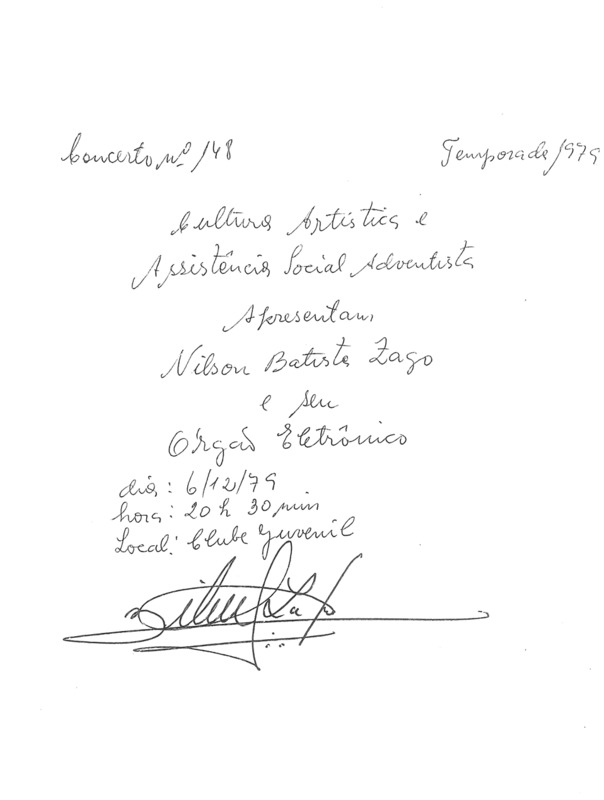 Concerto nº 148 Temporada/1979
Cultura Artística e
Assistência Social Adventista
Apresentam,
Nilson Batista Zago
e seu
Órgão Eletrônico
dia: 6/12/79
hora: 20 h 30 min
Local: Clube Juvenil